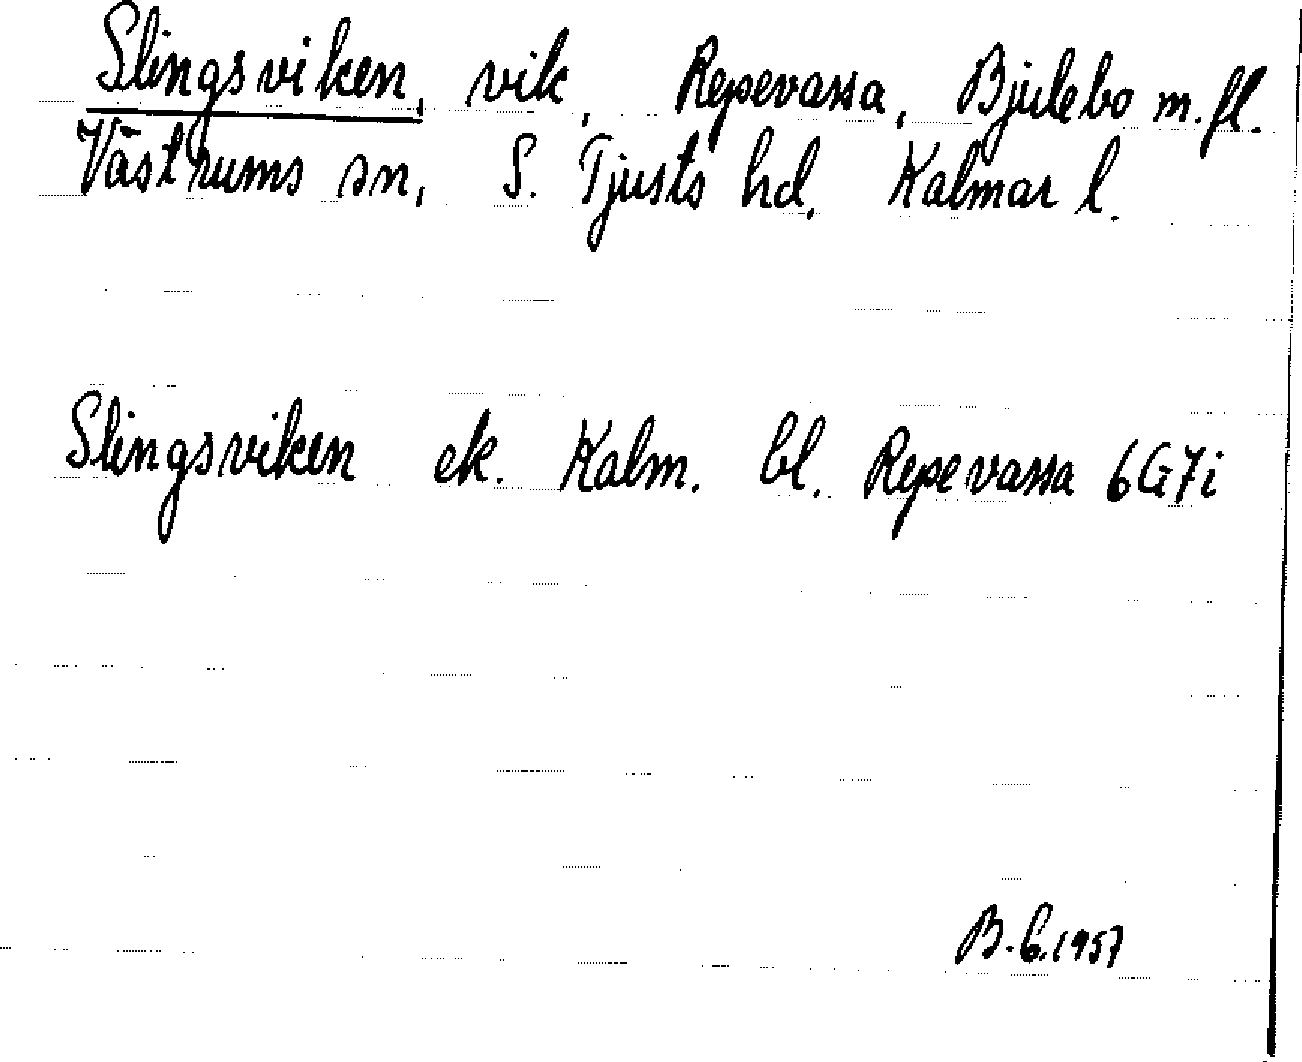 Slingsviken, vik, Repevassa, Bjulebo m.fl.
Västrums sn, S. Tjusts hd, Kalmar l.
Slingsviken ek. Kalm. bl. Repevassa 6G7i
B.G.1957